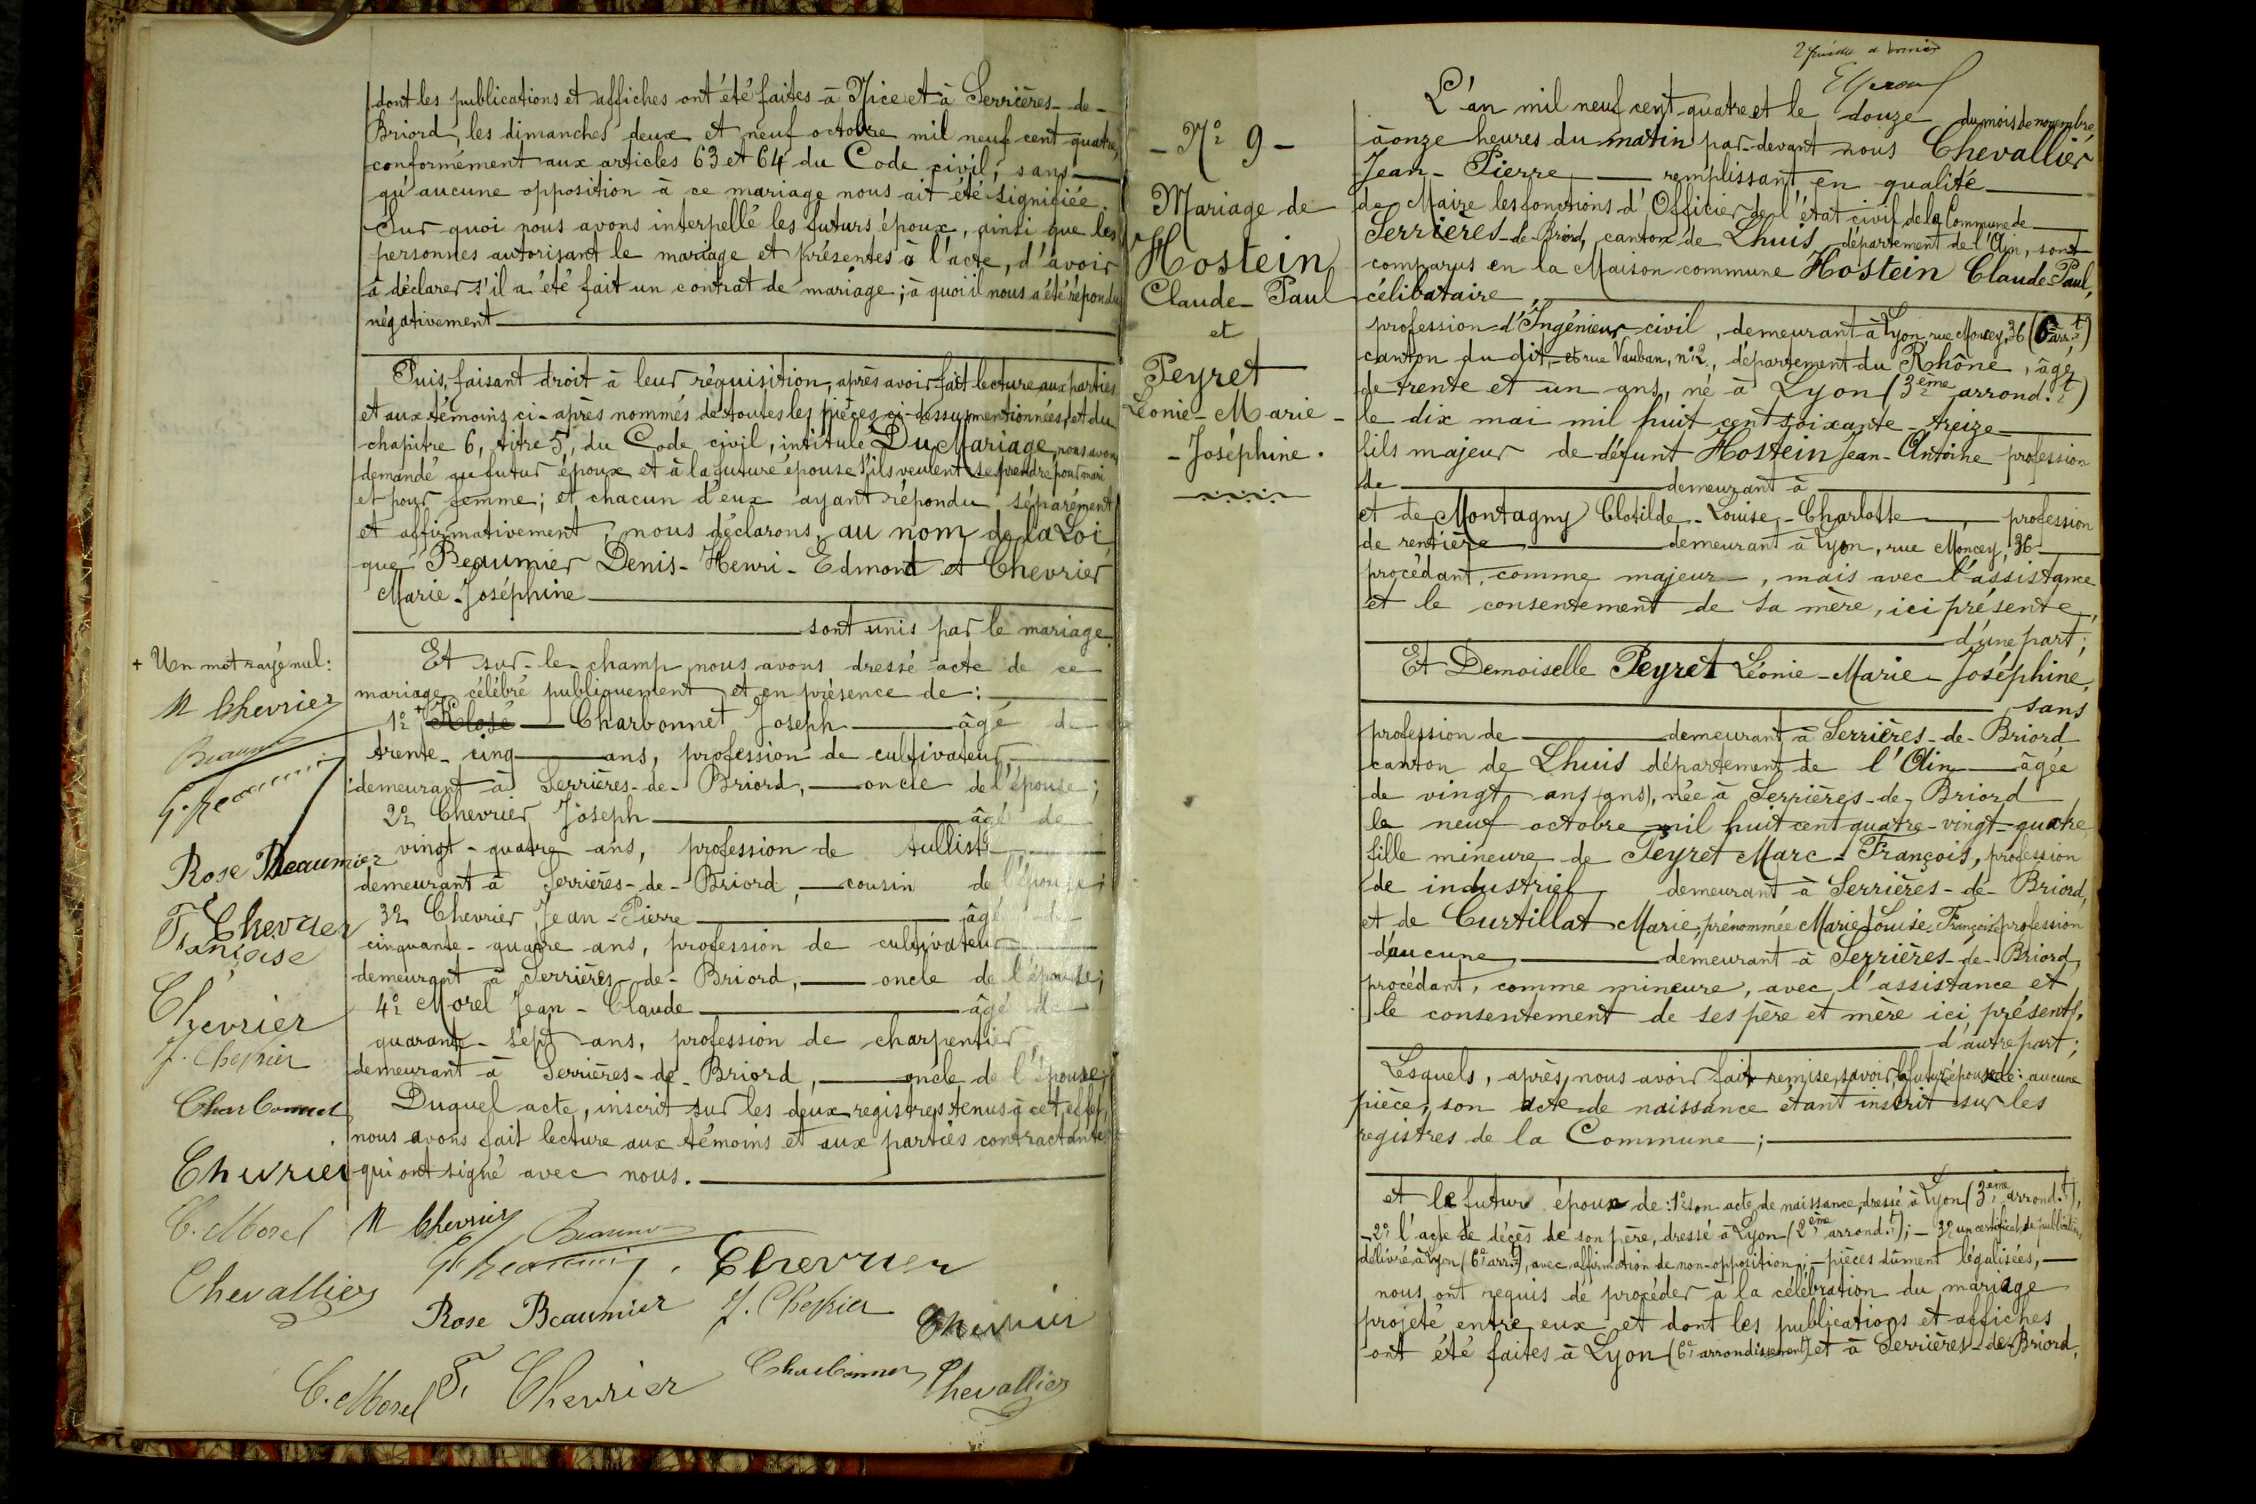 dont les publications et affiches ont été faites à Nice et à Serrières-de-
Briord, les dimanches deux et neuf octobre mil neuf cent quatre,
conformément aux articles 63 et 64 du Code civil, sans
qu'aucune opposition à ce mariage nous ait été signifiée.
Sur quoi nous avons interpellé les futurs époux, ainsi que les
personnes autorisant le mariage et présentes à l'acte, d'avoir
à déclarer s'il a été fait un contrat de mariage; à quoi il nous a été répondu
négativement
Puis, faisant droit à leur réquisition, après avoir fait lecture aux parties
et aux témoins ci-après nommés de toutes les pièces ci-dessus mentionnées, et du
chapitre 6, titre 5, du Code civil, intitulé Du Mariage, nous avons
demandé au futur époux et à la future épouse s'ils veulent se prendre pour mari
et pour femme; et chacun d'eux ayant répondu séparément
et affirmativement, nous déclarons, au nom de la Loi
que Beaumier Denis-Henri-Edmond et Chevrier
Marie-Joséphine
sont unis par le mariage.
Et sur-le-champ nous avons dressé acte de ce
mariage célébré publiquement et en présence de :
1º + Charbonnet Joseph âgé de
trente-cinq ans, profession de cultivateur,
demeurant à Serrières-de-Briord, oncle de l'épouse;
2º Chevrier Joseph âgé de
vingt-quatre ans, profession de tulliste
demeurant à Serrières-de-Briord, cousin de l'épouse;
3º Chevrier Jean-Pierre âgé de
cinquante-quatre ans, profession de cultivateur
demeurant à Serrières-de-Briord, oncle de l'épouse;
4º Morel Jean-Claude âgé de
quarante-sept ans, profession de charpentier
demeurant à Serrières-de-Briord, oncle de l'épouse,
Duquel acte, inscrit sur les deux registres tenus à cet effet,
nous avons fait lecture aux témoins et aux parties contractantes
qui ont signé avec nous.
+ Un mot rayé nul :
M Chevrier
Beaumier
G. Beaumier
Rose Beaumier
Chevrier
Françoise
Chevrier
J. Chevrier
Charbonnet
Chevrier
C. Morel
M Chevrier
Beaumier
Chevallier
G. Beaumier
Chevrier
Rose Beaumier
J. Chevrier
Chevrier
C. Morel
F. Chevrier
Charbonnet
Chevallier
- Nº 9 -
Mariage de
Hostein
Claude-Paul
et
Peyret
Léonie-Marie-
-Joséphine.
L'an mil neuf cent quatre et le douze du mois de novembre,
à onze heures du matin par-devant nous Chevallier
Jean-Pierre remplissant en qualité
de Maire les fonctions d'Officier de l'état civil de la Commune de
Serrières-de-Briord, canton de Lhuis, département de l'Ain, sont
comparus en la Maison commune Hostein Claude-Paul,
célibataire,
profession d'Ingénieur civil, demeurant à Lyon, rue Moncey, 36 (6e arr.t)
canton du dit, et rue Vauban, nº 2, département du Rhône, âgé
de trente et un ans, né à Lyon (3ème arrond.t)
le dix mai mil huit cent soixante-treize
fils majeur de défunt Hostein Jean-Antoine profession
de demeurant à
et de Montagny Clotilde-Louise-Charlotte, profession
de rentière demeurant à Lyon, rue Moncey, 36
procédant, comme majeur, mais avec l'assistance
et le consentement de sa mère, ici présente,
d'une part;
Et Demoiselle Peyret Léonie-Marie-Joséphine,
sans
profession de demeurant à Serrières-de-Briord
canton de Lhuis département de l'Ain âgée
de vingt ans (ans), née à Serrières-de-Briord
le neuf octobre mil huit cent quatre-vingt-quatre
fille mineure de Peyret Marc-François, profession
de industriel, demeurant à Serrières-de-Briord,
et de Curtillat Marie, prénommée Marie Louise Françoise profession
d'aucune demeurant à Serrières-de-Briord,
procédant, comme mineure, avec l'assistance et
le consentement de ses père et mère ici présents,
d'autre part;
Lesquels, après nous avoir fait remise, savoir, la future épouse de : aucune
pièce, son acte de naissance étant inscrit sur les
registres de la Commune;
et le futur époux de : 1º son acte de naissance, dressé à Lyon (3ème arrond.t),
- 2º l'acte de décès de son père, dressé à Lyon (2ème arrond.t); - 3º un certificat de publications
délivré à Lyon (6e arr.t), avec affirmation de non-opposition; - pièces dûment légalisées,
nous ont requis de procéder à la célébration du mariage
projeté entre eux et dont les publications et affiches
ont été faites à Lyon (6e arrondissement) et à Serrières-de-Briord,